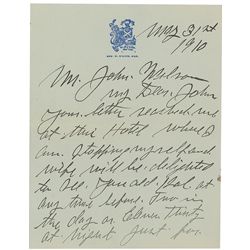 May 31st
1910
Mr. John Wilson
my Dear John
your letter reached me
at this Hotel where I
am stopping myself and
wife will be delighted
to see you and Pearl at
any time before Two in
the day or Eleven Thirty
at night just